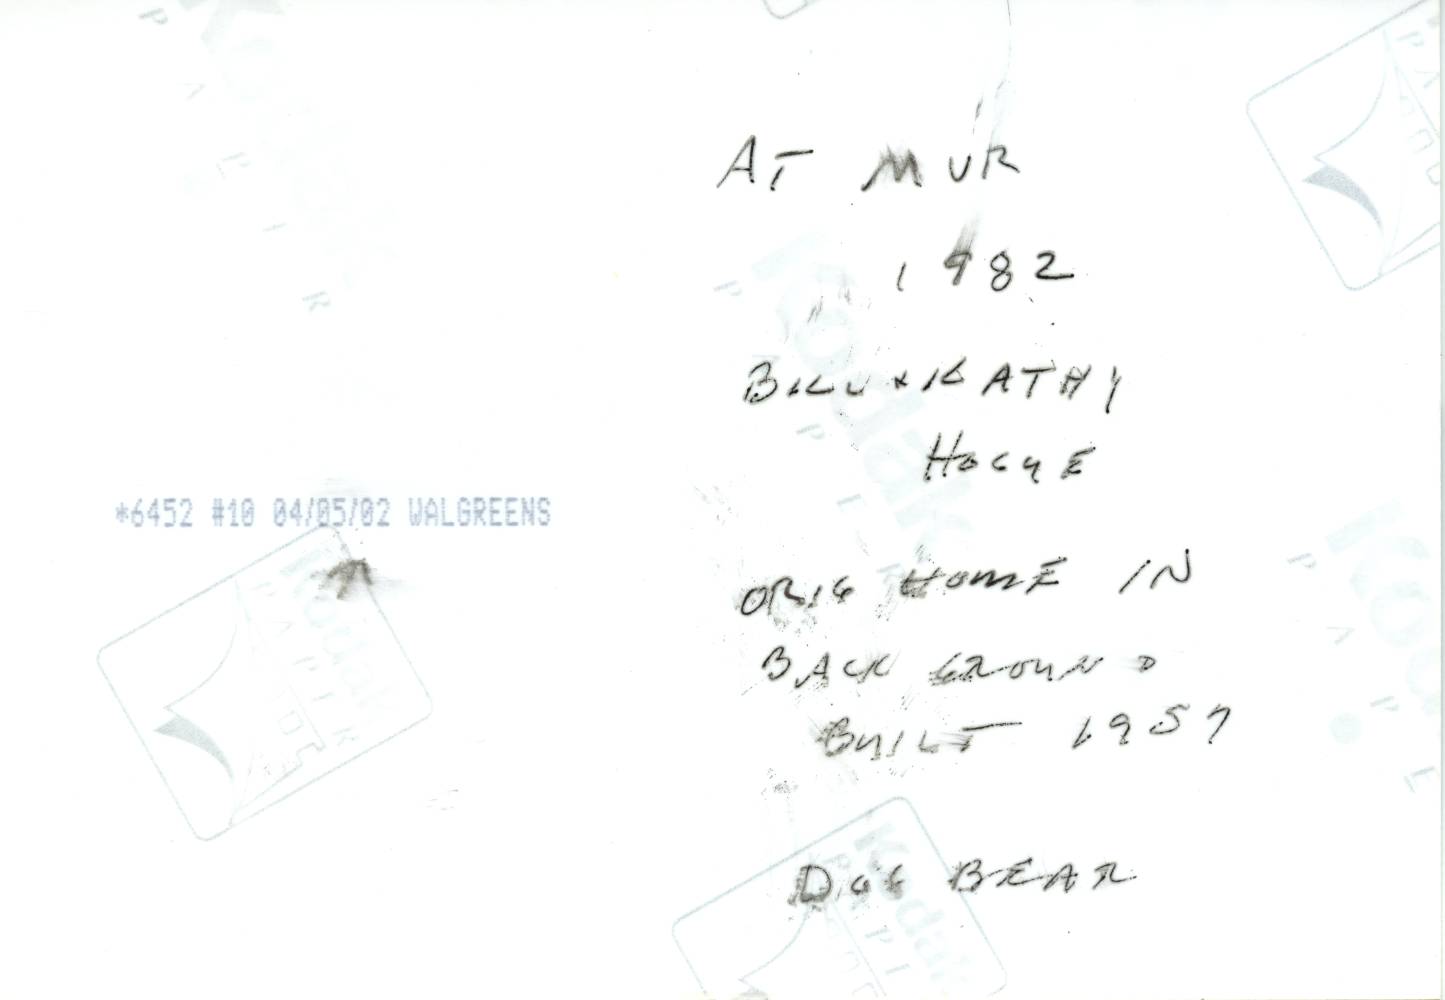 AT MVR
1982
BILL + KATHY
HOGUE
ORIG HOME IN
BACK GROUND
BUILT 1957
DOG BEAR
*6452 #10 04/05/02 WALGREENS
Kodak
PAPIER
Kodak
PAPIER
Kodak
PAPIER
Kodak